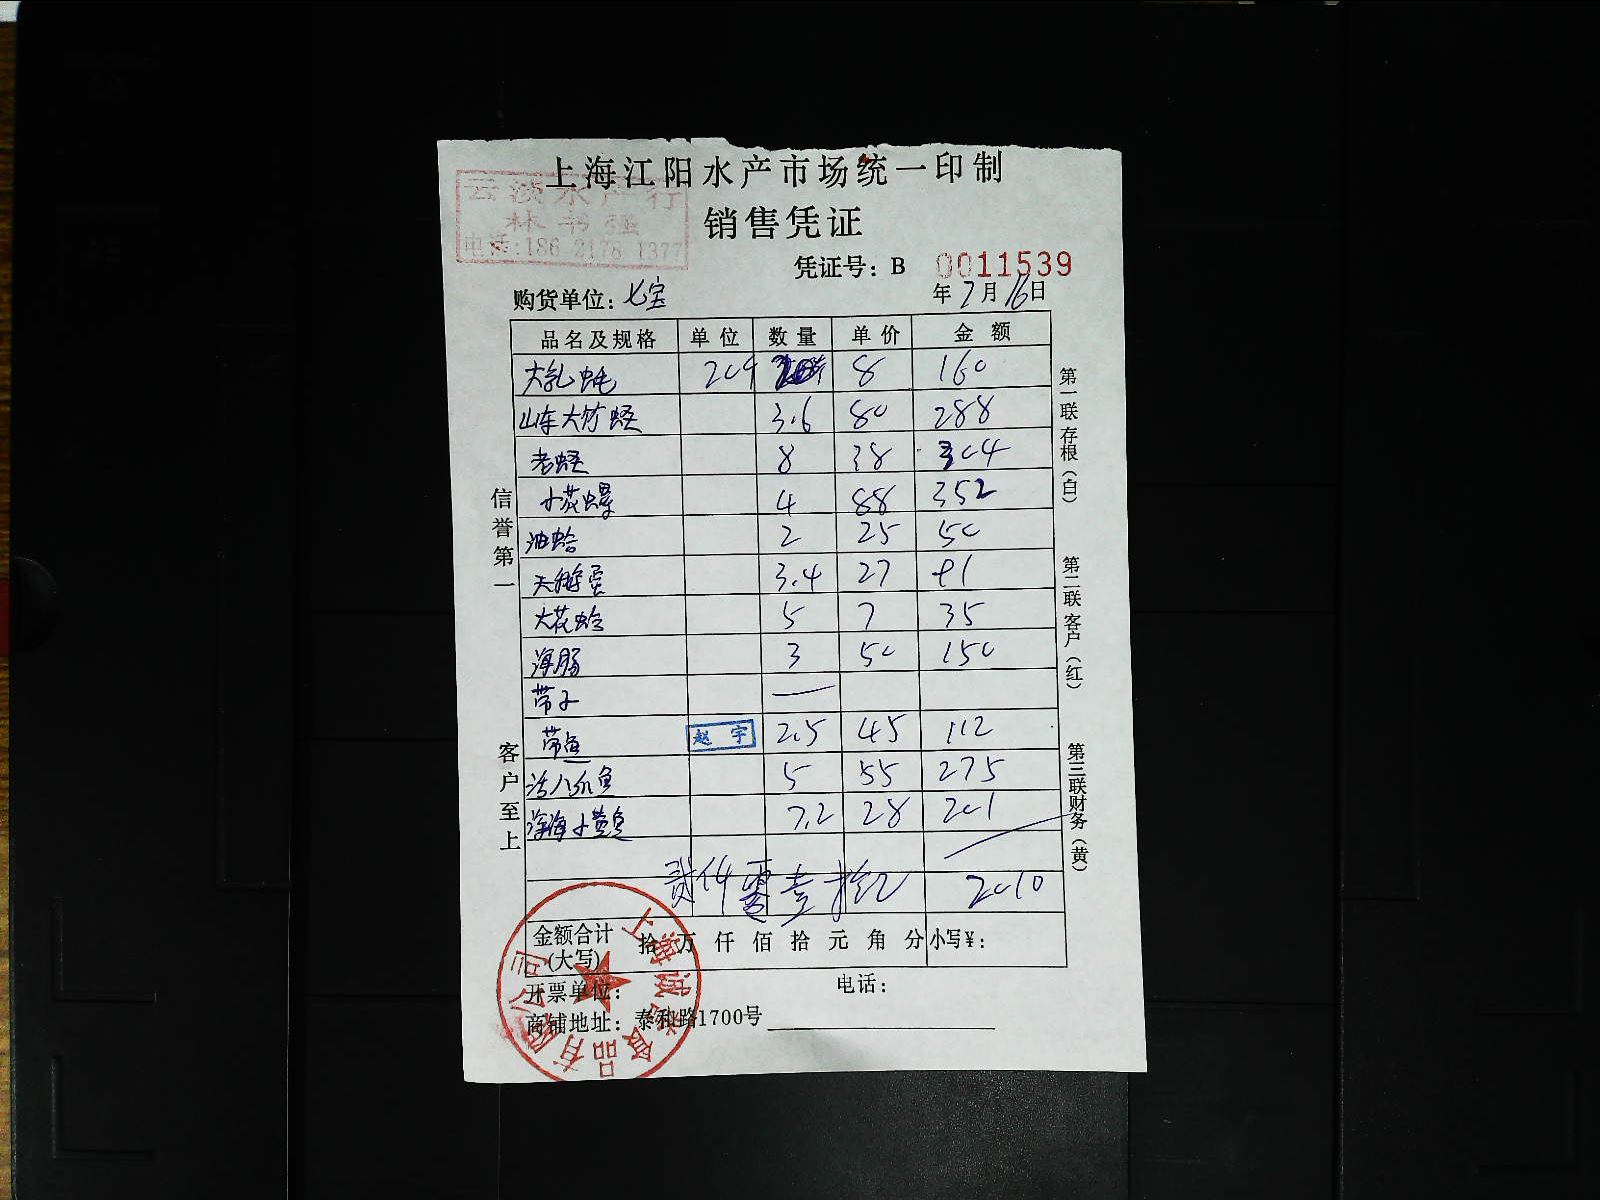 上海江阳水产市场统一印制
云波水产行
林书强
电话:186 2178 1377
销售凭证
凭证号：B 0011539
购货单位：七宝
年7月16日
品名及规格 单位 数量 单价 金额
大乳蚝 20个 8 160
山东大竹蛏 3.6 80 288
老蛏 8 38 304
小花螺 4 88 352
油蛤 2 25 50
天鹅蛋 3.4 27 91
大花蛤 5 7 35
海肠 3 50 150
带子 —
带鱼 赵宇 2.5 45 112
活八爪鱼 5 55 275
深海小黄鱼 7.2 28 201
贰仟零壹拾元 2010
金额合计(大写) 拾万仟佰拾元角分 小写¥：
开票单位： 电话：
商铺地址：泰和路1700号
信誉第一
客户至上
第一联存根（白）
第二联客户（红）
第三联财务（黄）